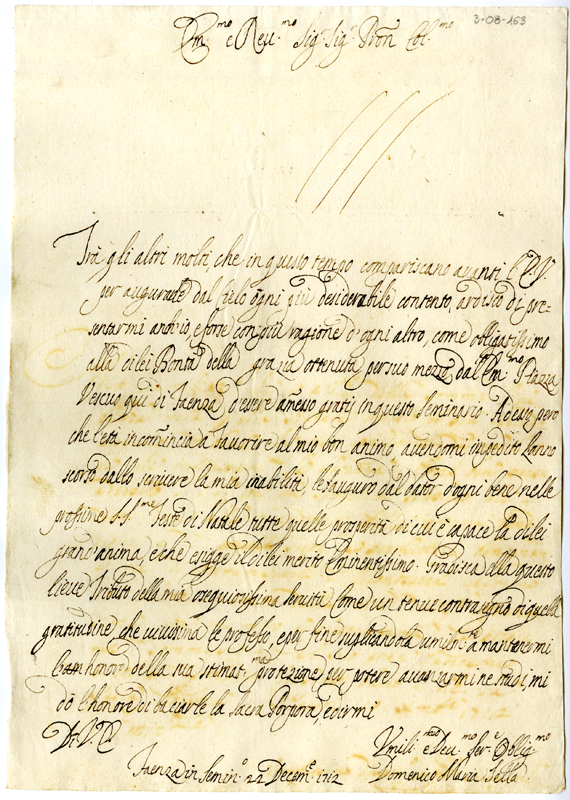 3-08-163
Em.mo e Reu.mo Sig.r Sig.r Pron Col.mo
Trà gli altri molti, che in questo tempo compariscano auanti l'E.V.
per augurarle dal Cielo ogni più desiderabile contento, ardisco di pre=
sentarmi anch'io, e forse con più ragione d'ogni altro, come obligatissimo
alla di lei Bontà della grazia ottenuta per suo mezzo dall'Em.mo Piazza
Vescuo quì di Faenza d'essere amesso gratis in questo Seminario. Adesso però
che l'età incomincia a fauorire al mio bon animo, auendomi impedito l'anno
scorso dallo scriuere la mia inabilità, le auguro dal dator d'ogni bene nelle
prossime SS.me Feste di Natale tutte quelle prosperità di cui è capace la di lei
grand'anima, e che esigge il di lei merito Eminentissimo. Gradisca alla questo
lieue Tributo della mia ossequiosissima seruitù come un tenue contrasegno di quella
gratitudine, che viuissima le professo, e per fine suplicandola umilm.e a mantenermi
l'honore della sua stimat.ma protezione per potere auanzarmi ne studi, mi
dò l'honore di baciarle la Sacra Porpora, e dirmi
Di V.E.
Umili.mo e Deu.mo Ser.e Oblig.mo
Faenza in Semin.o 22 Decem.e 1712 Domenico Maria Sella